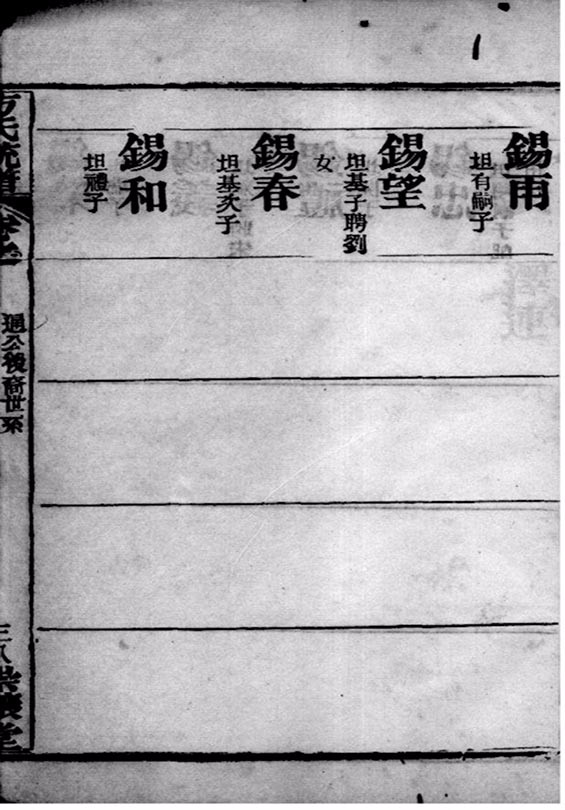 錫甭
坦有嗣子
錫望
坦基子聘劉
女
錫春
坦基次子
錫和
坦禮子
通公後裔世系